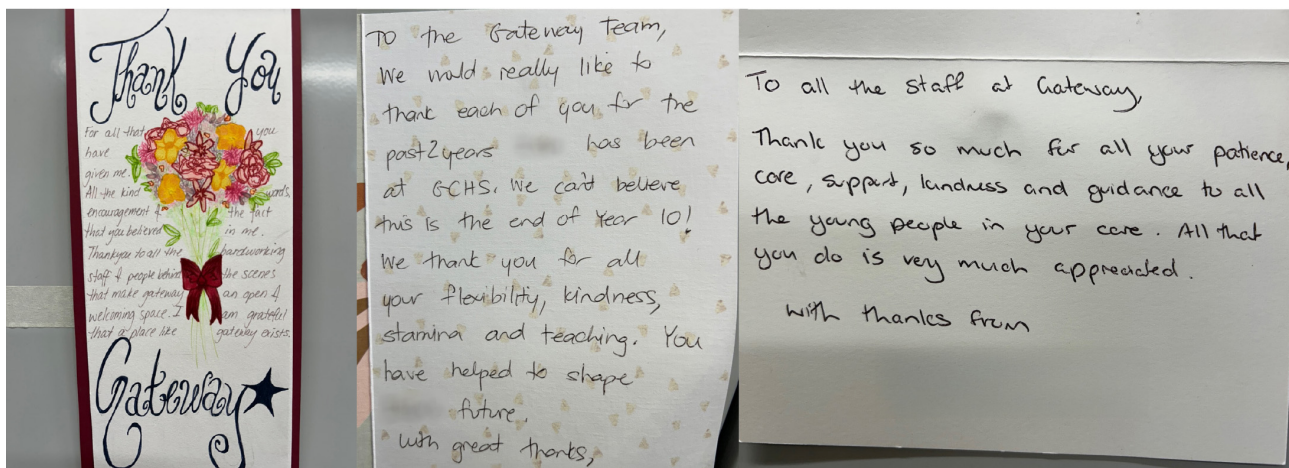 Thank You
For all that you
have
given me.
All the kind words,
encouragement & the fact
that you believed in me.
Thankyou to all the hardworking
staff & people behind the scenes
that make gateway an open &
welcoming space. I am grateful
that a place like gateway exists.
Gateway
To the Gateway Team,
We would really like to
thank each of you for the
past 2 years has been
at GCHS. We can't believe
this is the end of Year 10!
We thank you for all
your flexibility, kindness,
stamina and teaching. You
have helped to shape
future.
With great thanks,
To all the staff at Gateway,
Thank you so much for all your patience,
care, support, kindness and guidance to all
the young people in your care. All that
you do is very much appreciated.
with thanks from